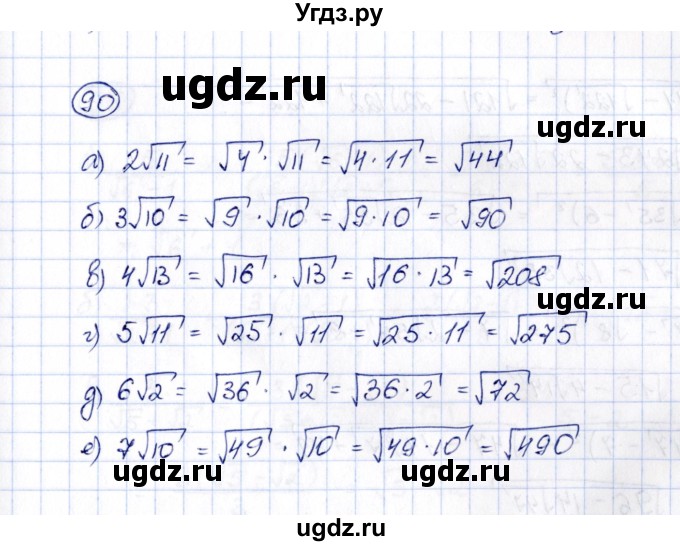 Угдз.ру
90
ugdz.ru
а) 2√11 = √4 · √11 = √4·11 = √44
ugdz.ru
б) 3√10 = √9 · √10 = √9·10 = √90
в) 4√13 = √16 · √13 = √16·13 = √208
ugdz.ru
г) 5√11 = √25 · √11 = √25·11 = √275
ugdz.ru
д) 6√2 = √36 · √2 = √36·2 = √72
е) 7√10 = √49 · √10 = √49·10 = √490
ugdz.ru
ugdz.ru
ugdz.ru